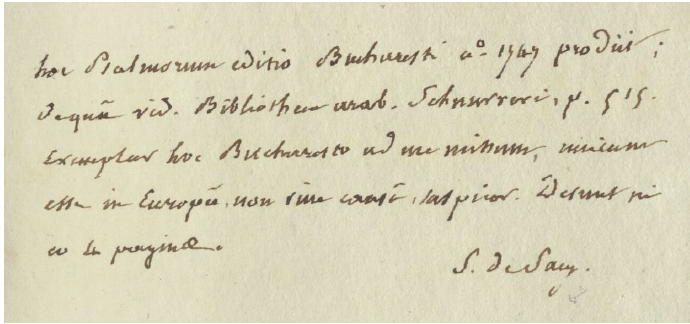 hoc Psalmorum editio Bucharesti aº. 1747 prodiit;
de quâ vid. Bibliothec. arab. Schnurreri, p. 515.
Exemplar hoc Bucharesto ad me missum, unicum
esse in Europâ, non sine causâ, suspicor. Desunt in
eo 4 paginæ.
S. de Sacy.